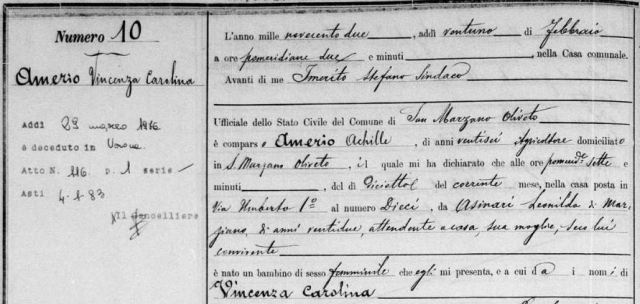 Numero 10
Amerio Vincenza Carolina
Addì 29 marzo
è deceduto in Verona
Atto N. 116 p. 1 serie -
Asti 4.1.83
Il Cancelliere
L'anno mille novecento due, addì ventuno di Febbraio
a ore pomeridiane due e minuti, nella Casa comunale.
Avanti di me Imerito Stefano Sindaco
Ufficiale dello Stato Civile del Comune di San Marzano Oliveto
è compars o Amerio Achille, di anni ventisei Agricoltore domiciliato
in S. Marzano Oliveto, il quale mi ha dichiarato che alle ore pomerid.e sette
e minuti, del dì Diciotto del corrente mese, nella casa posta in
Via Umberto 1º al numero Dieci, da Asinari Leonilda di Mar-
ziano, di anni ventidue, attendente a casa, sua moglie, seco lui
convivente
è nato un bambino di sesso femminile che egli mi presenta, e a cui da i nomi di
Vincenza Carolina